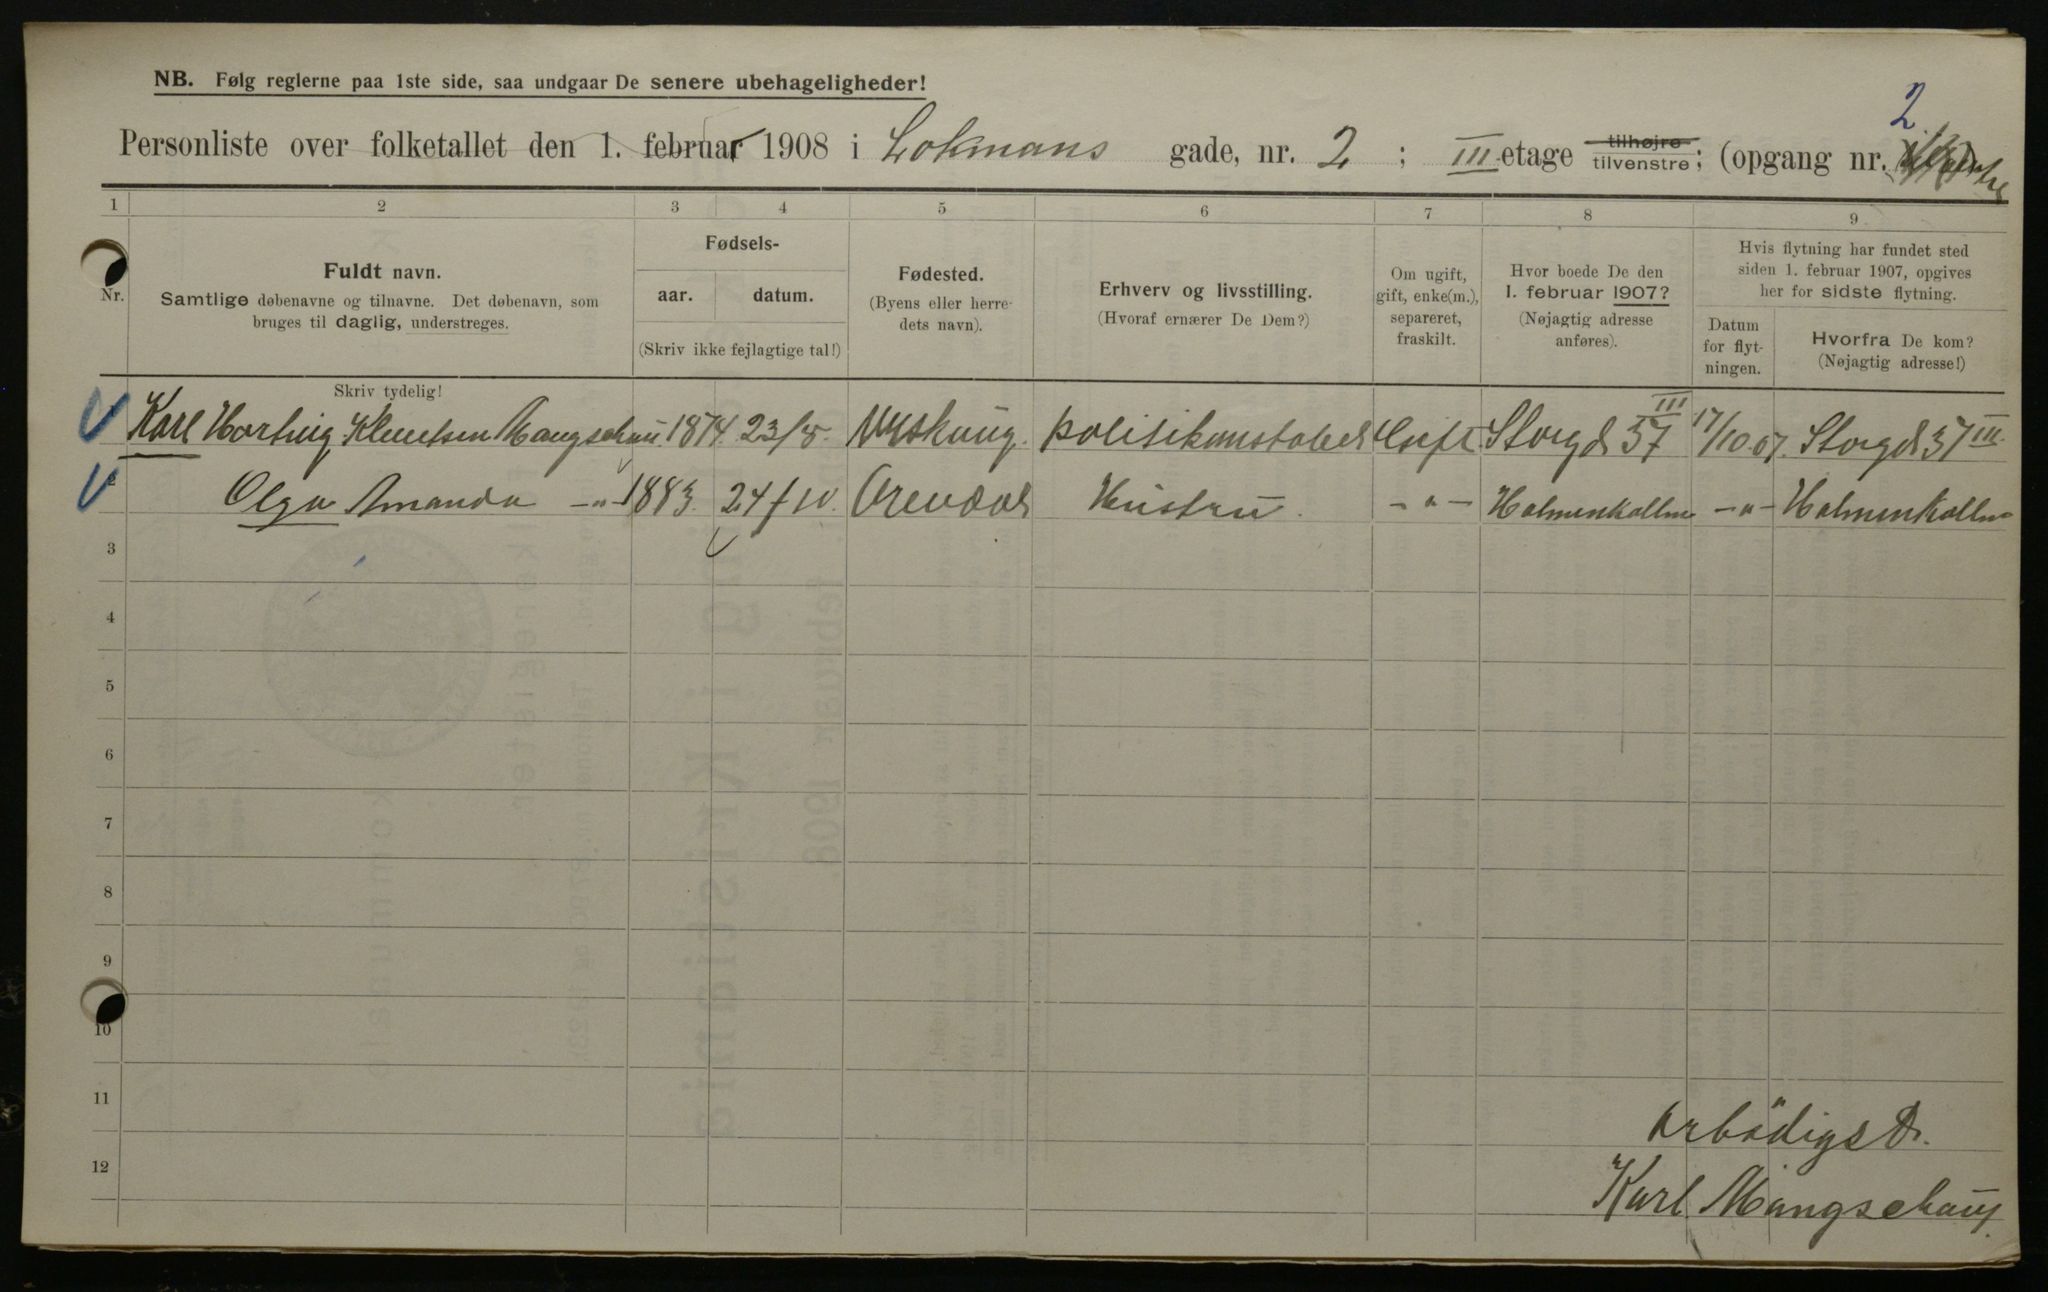 NB. Følg reglerne paa 1ste side, saa undgaar De senere ubehageligheder!
Personliste over folketallet den 1. februar 1908 i Lokmans gade, nr. 2; III etage tilhøjre tilvenstre; (opgang nr. 2
1 2 3 4 5 6 7 8 9
Nr.
Fuldt navn.
Samtlige døbenavne og tilnavne. Det døbenavn, som
bruges til daglig, understreges.
Fødsels-
aar. datum.
(Skriv ikke fejlagtige tal!)
Fødested.
(Byens eller herre-
dets navn).
Erhverv og livsstilling.
(Hvoraf ernærer De Dem?)
Om ugift,
gift, enke(m.),
separeret,
fraskilt.
Hvor boede De den
1. februar 1907?
(Nøjagtig adresse
anføres).
Hvis flytning har fundet sted
siden 1. februar 1907, opgives
her for sidste flytning.
Datum
for flyt-
ningen.
Hvorfra De kom?
(Nøjagtig adresse!)
Skriv tydelig!
Karl Hartvig Knutsen Mangschau 1874 23/5 politikonstabel Gift Storgd 37 III 17/10.07. Storgd 37 III.
2 Olga Amanda -"- 1883 24/10. Arendal Hustru. -"- Holmenkollen -"- Holmenkollen
3
4
5
6
7
8
9
10
11
12
Ærbødigst
Karl Mangschau